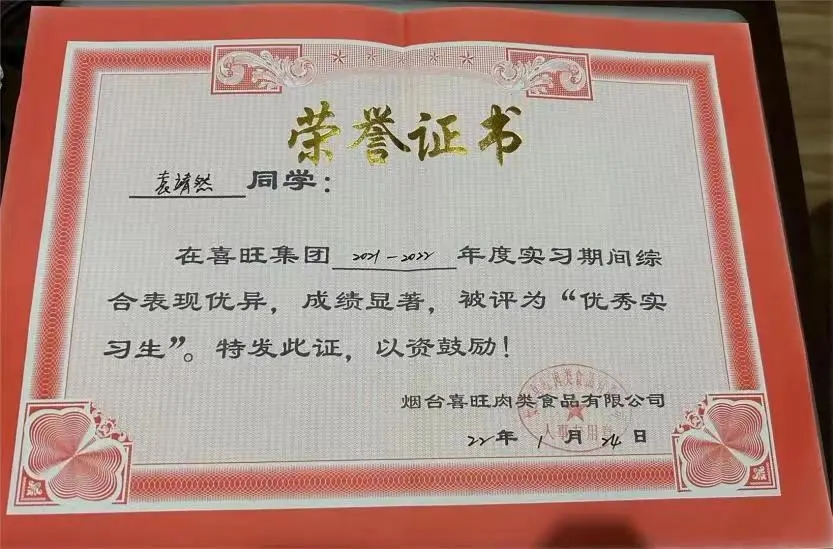 荣誉证书
袁靖然同学：
在喜旺集团2021-2022年度实习期间综
合表现优异，成绩显著，被评为“优秀实
习生”。特发此证，以资鼓励！
烟台喜旺肉类食品有限公司
22年1月24日
人事专用章